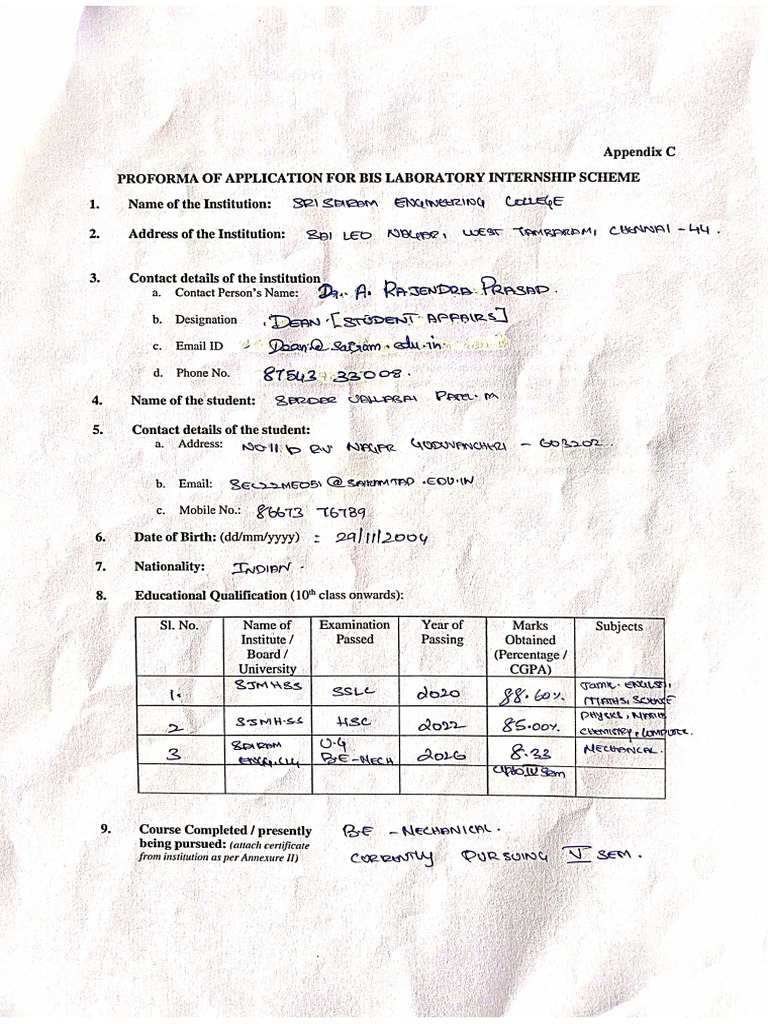 Appendix C
PROFORMA OF APPLICATION FOR BIS LABORATORY INTERNSHIP SCHEME
1. Name of the Institution: SRI SAIRAM ENGINEERING COLLEGE
2. Address of the Institution: SAI LEO NAGAR, WEST TAMBARAM, CHENNAI - 44.
3. Contact details of the institution
a. Contact Person's Name: Dr. A. RAJENDRA PRASAD.
b. Designation : DEAN [STUDENT AFFAIRS]
c. Email ID : Dean@sairam.edu.in
d. Phone No. 87543 33008.
4. Name of the student: SARDAR VALLABAI PATEL. M
5. Contact details of the student:
a. Address: NO 11 NAGAR GUDUVANCHERI - 603202.
b. Email: SEC22ME051@SAIRAMTAP.EDU.IN
c. Mobile No.: 86673 76789
6. Date of Birth: (dd/mm/yyyy) : 29/11/2004
7. Nationality: INDIAN.
8. Educational Qualification (10th class onwards):
Sl. No. Name of Institute / Board / University Examination Passed Year of Passing Marks Obtained (Percentage / CGPA) Subjects
1. SJMHSS SSLC 2020 88.60% Tamil, ENGLISH, MATHS, SCIENCE
2 SJMHSS HSC 2022 85.00% PHYSICS, MATHS CHEMISTRY, COMPUTER.
3 SAIRAM ENGG.CLG U.G B.E-MECH 2026 8.33 MECHANICAL.
Upto IV Sem
9. Course Completed / presently B.E - MECHANICAL.
being pursued: (attach certificate
from institution as per Annexure II) CURRENTLY PURSUING V SEM.